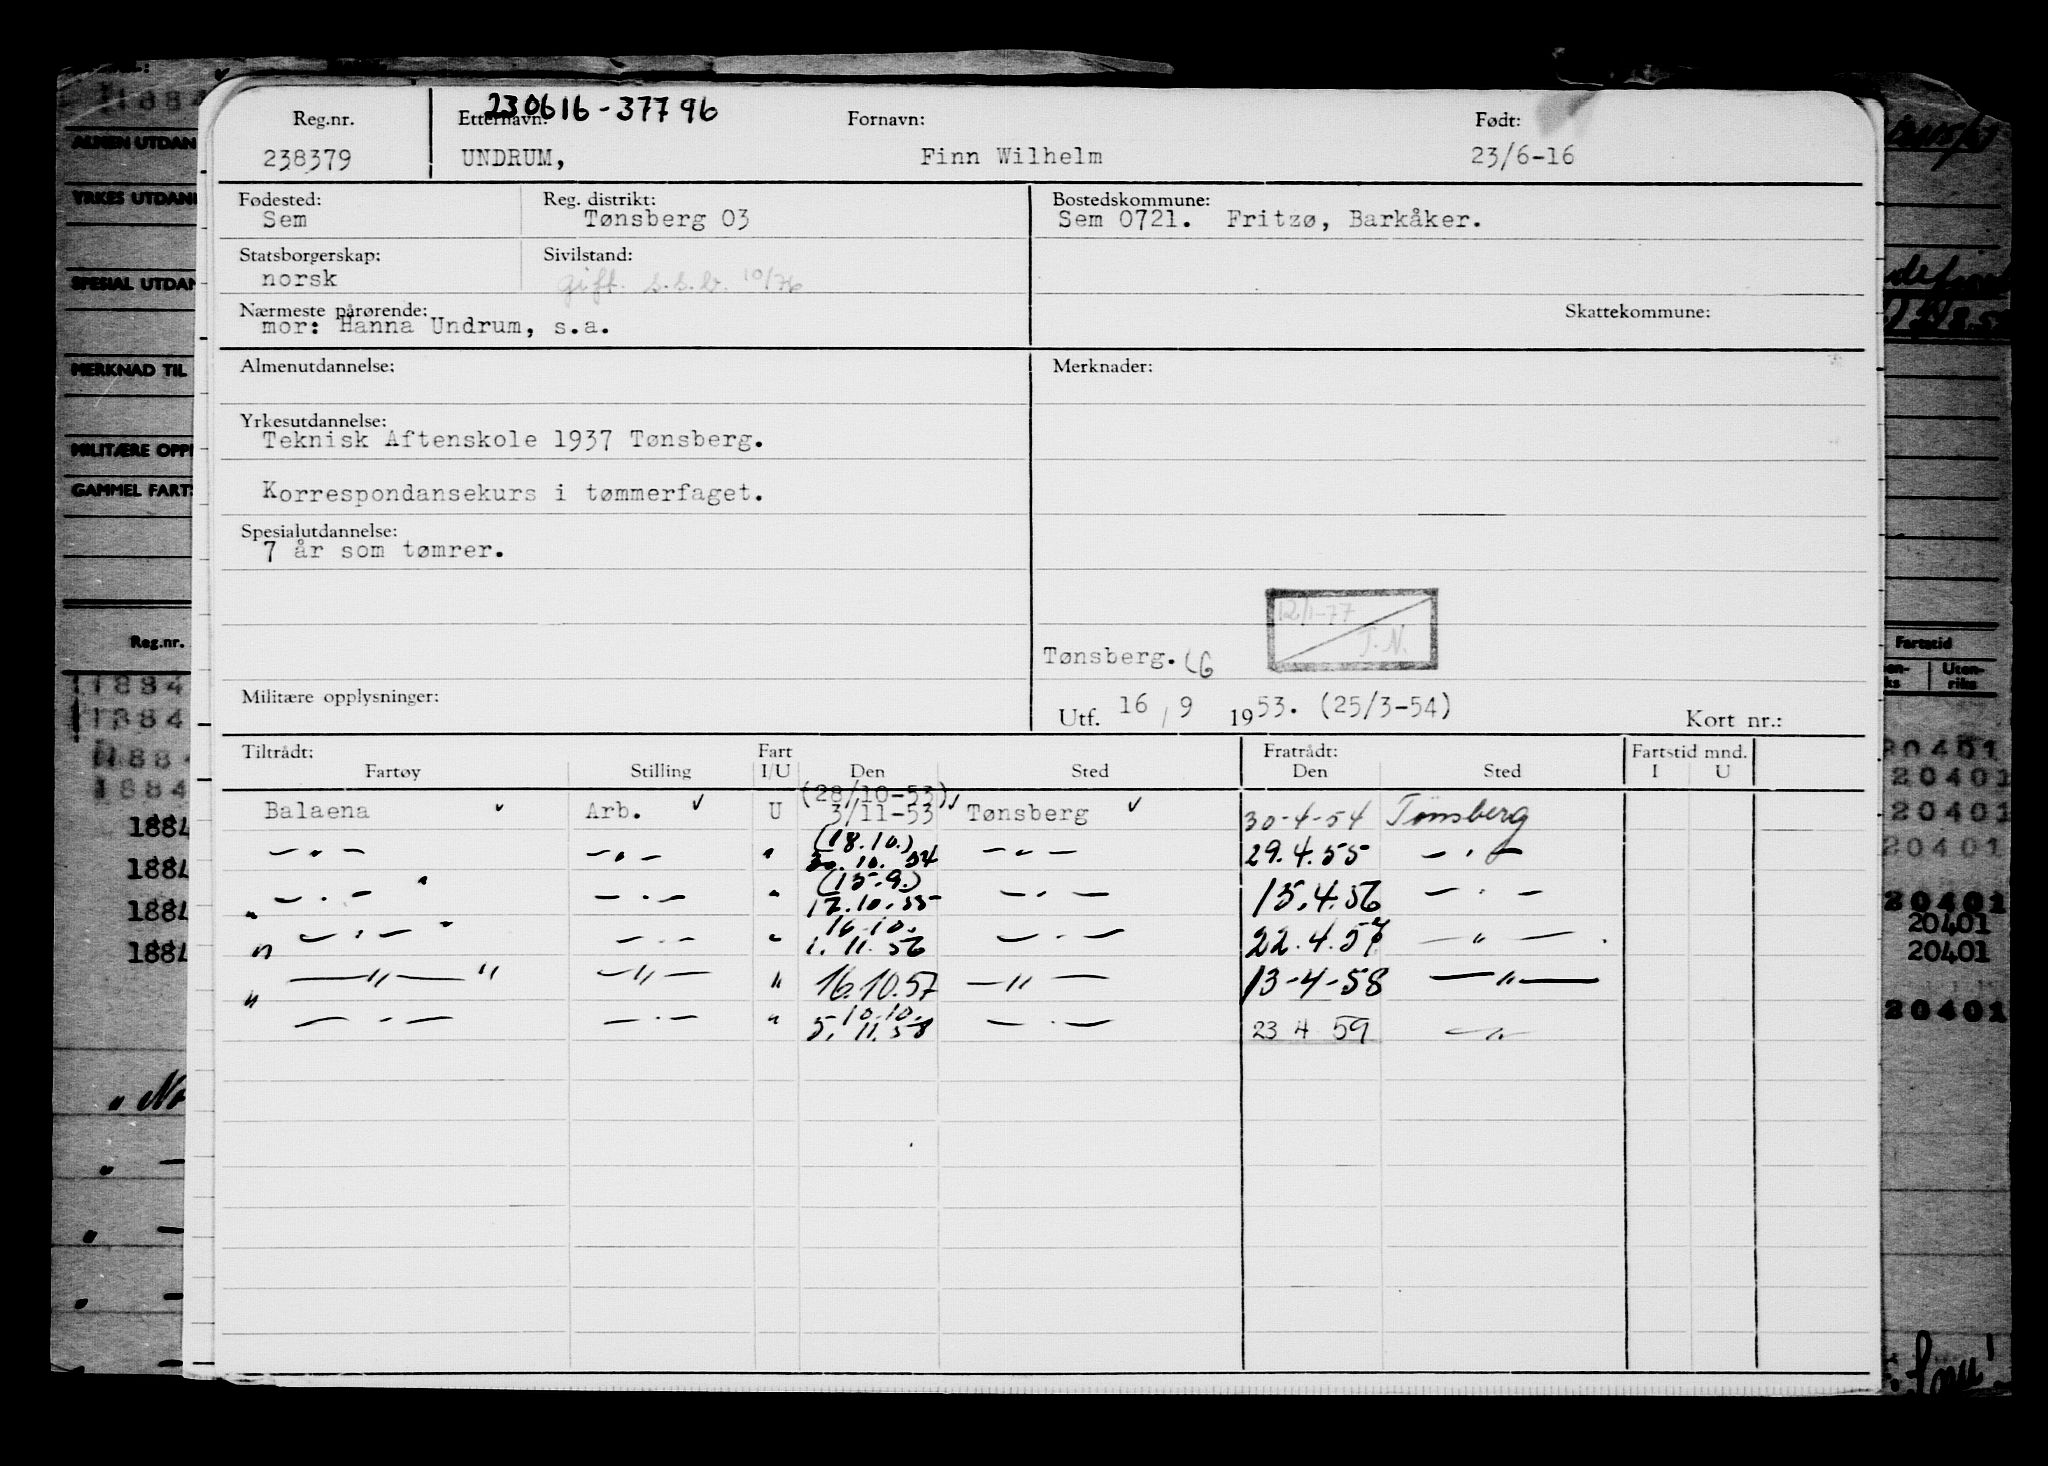 230616-37796
Reg.nr. Etternavn: Fornavn: Født:
238379 UNDRUM, Finn Wilhelm 23/6-16
Fødested: Reg. distrikt: Bostedskommune:
Sem Tønsberg 03 Sem 0721. Fritzø, Barkåker.
Statsborgerskap: Sivilstand:
norsk gift. s.s.b. 10/76
Nærmeste pårørende: Skattekommune:
mor: Hanna Undrum, s.a.
Almenutdannelse: Merknader:
Yrkesutdannelse:
Teknisk Aftenskole 1937 Tønsberg.
Korrespondansekurs i tømmerfaget.
Spesialutdannelse:
7 år som tømrer.
12/1-77
T.N.
Tønsberg.
Militære opplysninger:
Utf. 16/9 1953. (25/3-54) Kort nr.:
Tiltrådt: Fart Fratrådt: Fartstid mnd.
Fartøy Stilling I/U Den Sted Den Sted I U
(28/10-53)
Balaena Arb. U 3/11-53 Tønsberg 30-4-54 Tønsberg
(18.10.)
— " — — " — " 30.10.54 — " — 29.4.55 — " —
(15.9.)
— " — — " — " 12.10.55 — " — 15.4.56 — " —
16.10.
" — " — " — " — " 1.11.56 — " — 22.4.57 — " —
" — " — " — " — " 16.10.57 — " — 13-4-58 — " —
10.10.
" — " — — " — " 5.11.58 — " — 23 4 59 — " —
ALMEN UTDAN
YRKES UTDAN
SPESIAL UTDAN
MERKNAD TIL
MILITÆRE OPP
GAMMEL FART
Reg.nr.
11884
1884
1884
1884
1884
1884
1884
1884
Fartstid
Uten-
riks
20401
20401
20401
20401
20401
20401
20401
20401